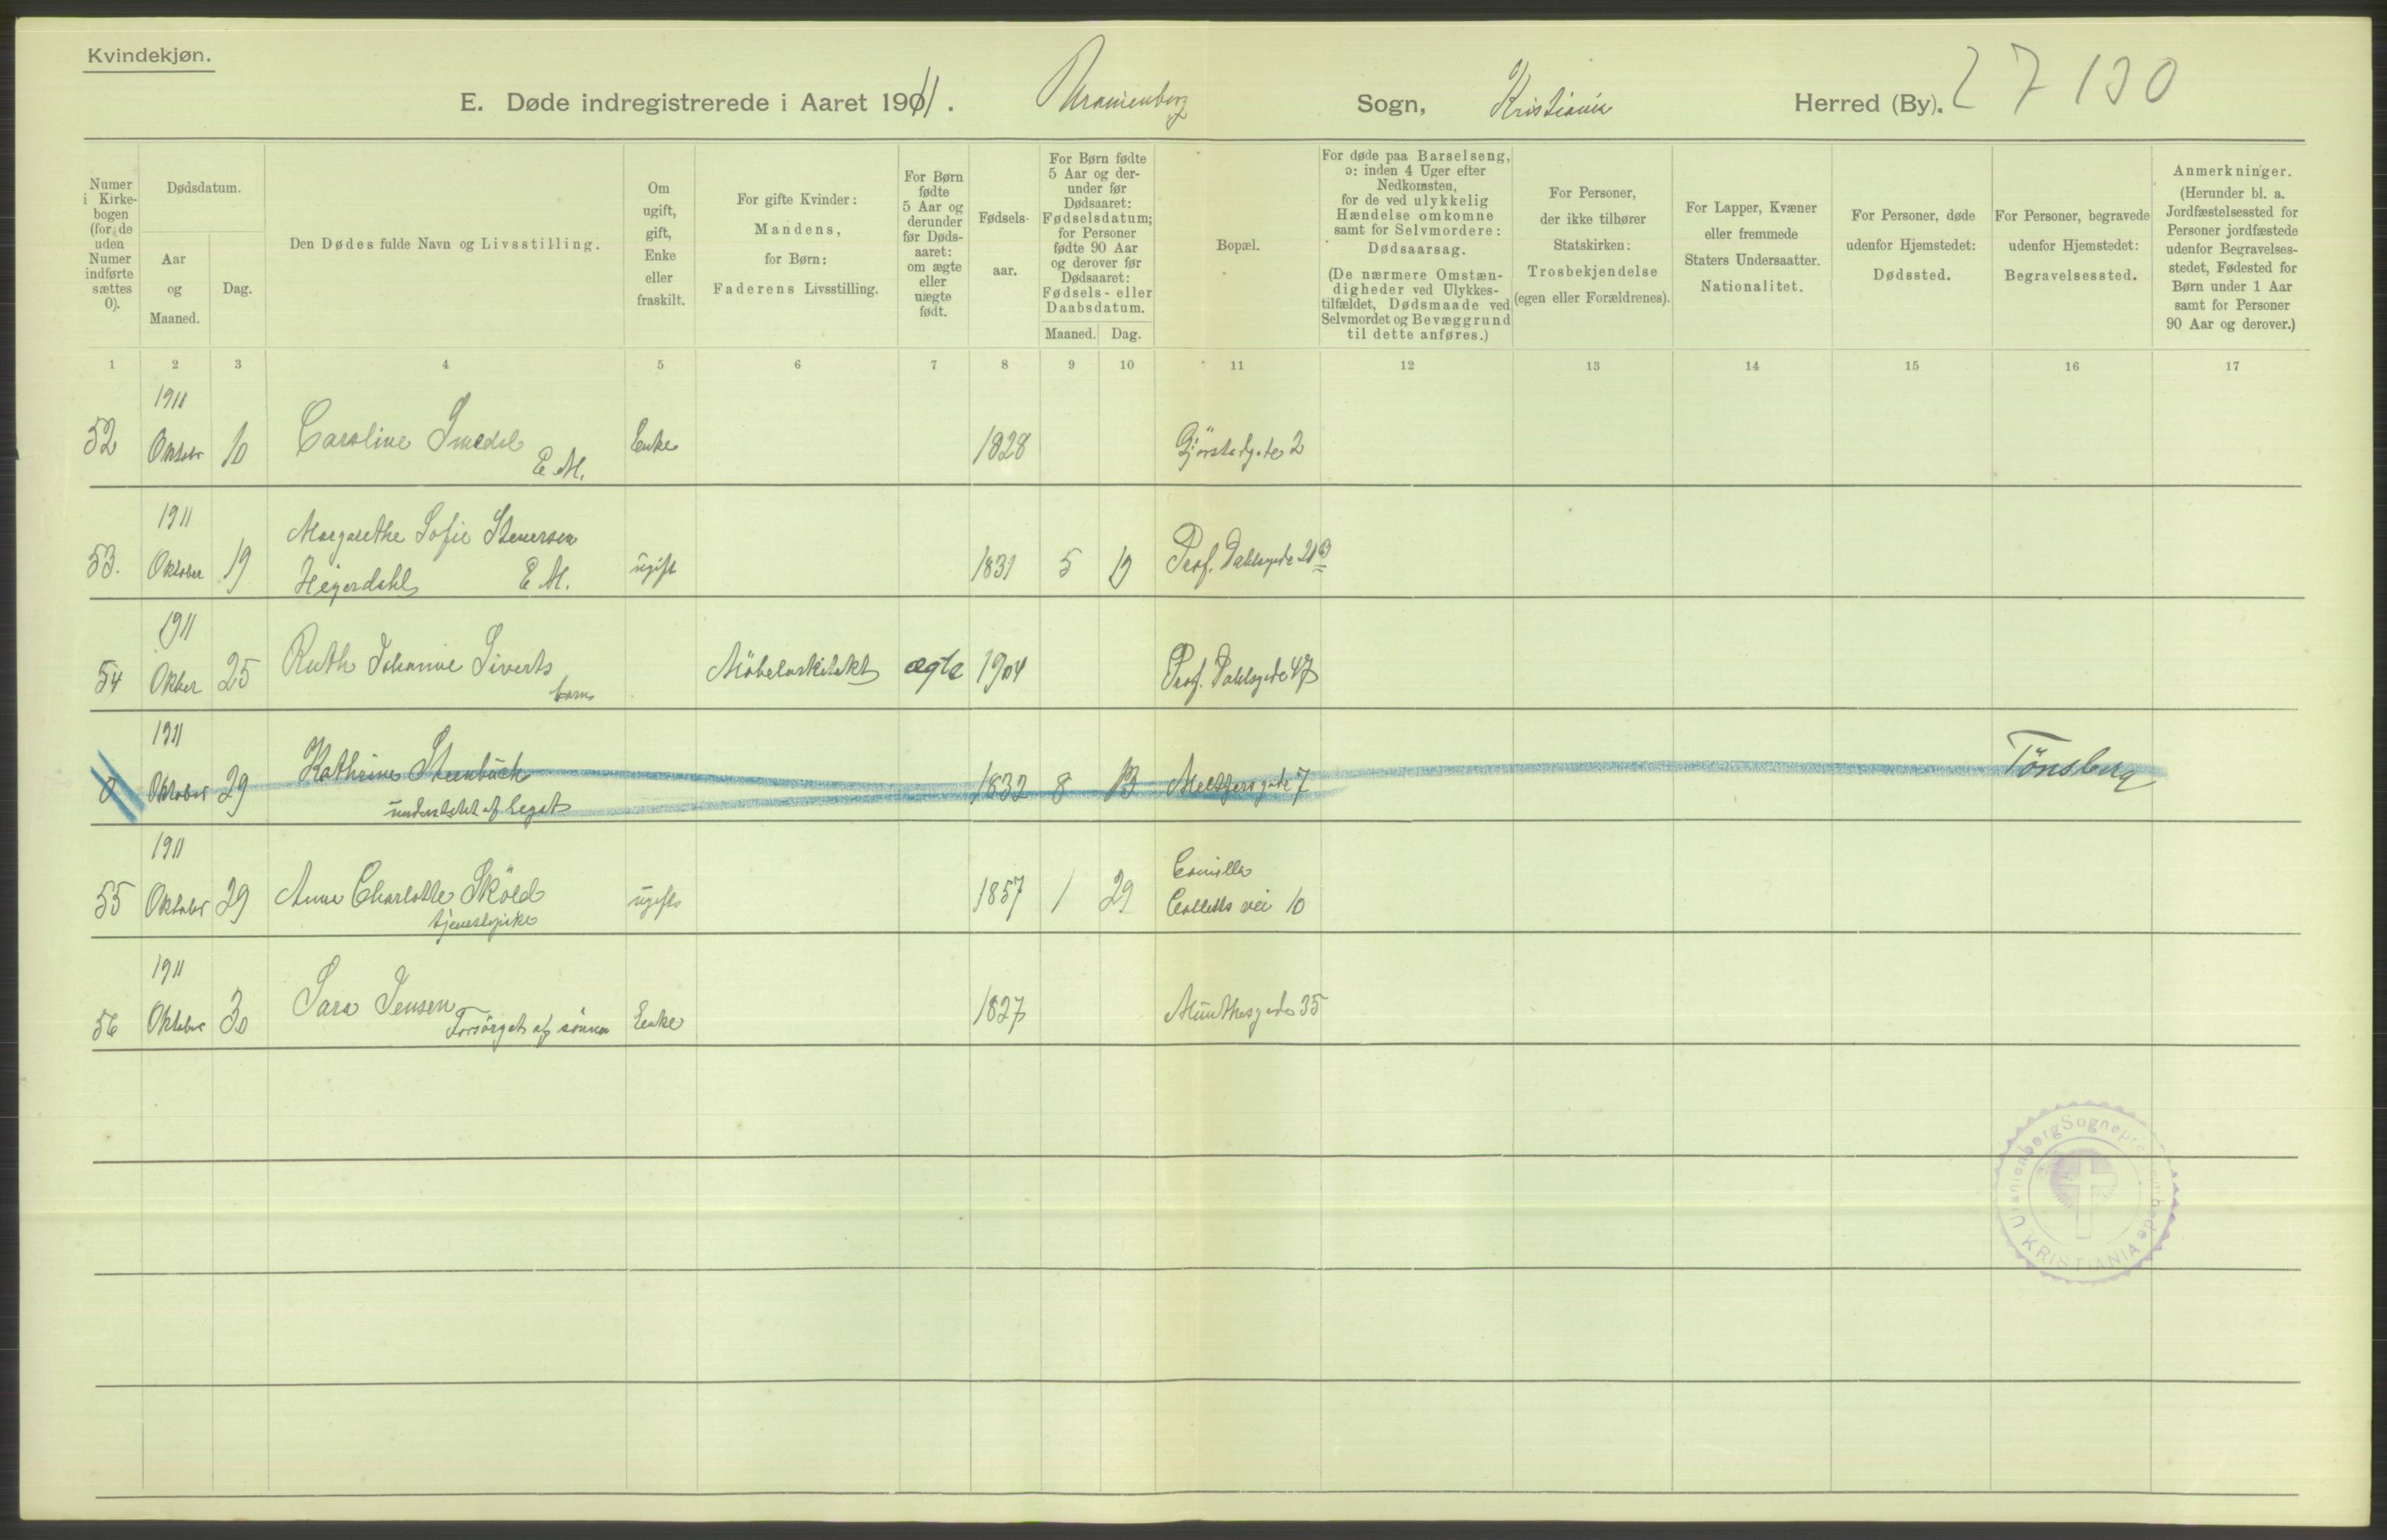 Kvindekjøn.
E. Døde indregistrerede i Aaret 1911. Uranienborg Sogn, Kristiania Herred (By). 27 130
Numer i Kirkebogen (for de uden Numer indførte sættes 0).
Dødsdatum.
Aar og Maaned.
Dag.
Den Dødes fulde Navn og Livsstilling.
Om ugift, gift, Enke eller fraskilt.
For gifte Kvinder: Mandens, for Børn: Faderens Livsstilling.
For Børn fødte 5 Aar og derunder før Dødsaaret: om ægte eller uægte født.
Fødselsaar.
For Børn fødte 5 Aar og derunder før Dødsaaret: Fødselsdatum; for Personer fødte 90 Aar og derover før Dødsaaret: Fødsels- eller Daabsdatum.
Maaned. Dag.
Bopæl.
For døde paa Barselseng, ɔ: inden 4 Uger efter Nedkomsten, for de ved ulykkelig Hændelse omkomne samt for Selvmordere: Dødsaarsag. (De nærmere Omstændigheder ved Ulykkestilfældet, Dødsmaade ved Selvmordet og Bevæggrund til dette anføres.)
For Personer, der ikke tilhører Statskirken: Trosbekjendelse (egen eller Forældrenes).
For Lapper, Kvæner eller fremmede Staters Undersaatter. Nationalitet.
For Personer, døde udenfor Hjemstedet: Dødssted.
For Personer, begravede udenfor Hjemstedet: Begravelsessted.
Anmerkninger. (Herunder bl. a. Jordfæstelsessted for Personer jordfæstede udenfor Begravelsesstedet, Fødested for Børn under 1 Aar samt for Personer 90 Aar og derover.)
1 2 3 4 5 6 7 8 9 10 11 12 13 14 15 16 17
1911
52 Oktober 10 Caroline Smedal E. M. Enke 1828
2
1911
Margarethe Sofie Steuersen
53. Oktober 19 Heyerdahl E. M. ugift 1831 5 19 Prof. Dahlsgade 21 B
1911
54 Oktber 25 Ruth Johanne Siverts Møbelarkitekt ægte 1904 Prof. Dahlsgade 47
barn
1911
0 Oktober 29 Kathrine Steenbuch 1832 8 13 Meltzersgade 7 Tönsberg
understøttet af legat
1911
Camilla
55 Oktober 29 Anna Charlotte Sköld ugift 1857 1 29 Colletts vei 10
tjenestepike
1911
56 Oktober 30 Sara Jensen Enke 1827 Munthesgade 35
Forsörget af sönnen
Uranienborg Sogneprestembede
KRISTIANIA